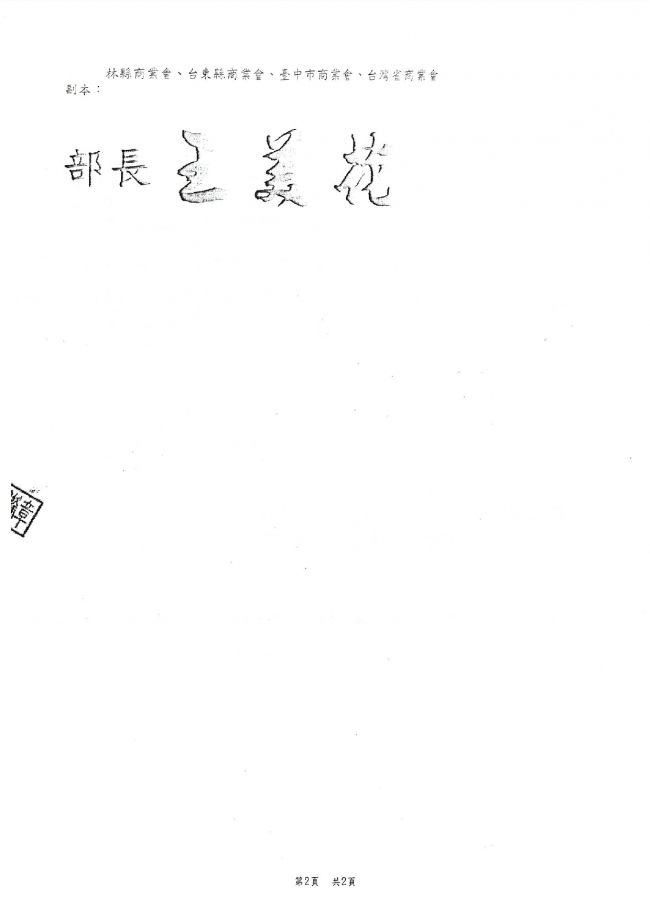 林縣商業會、台東縣商業會、臺中市商業會、台灣省商業會
副本：
部長 王美花
章
第2頁 共2頁